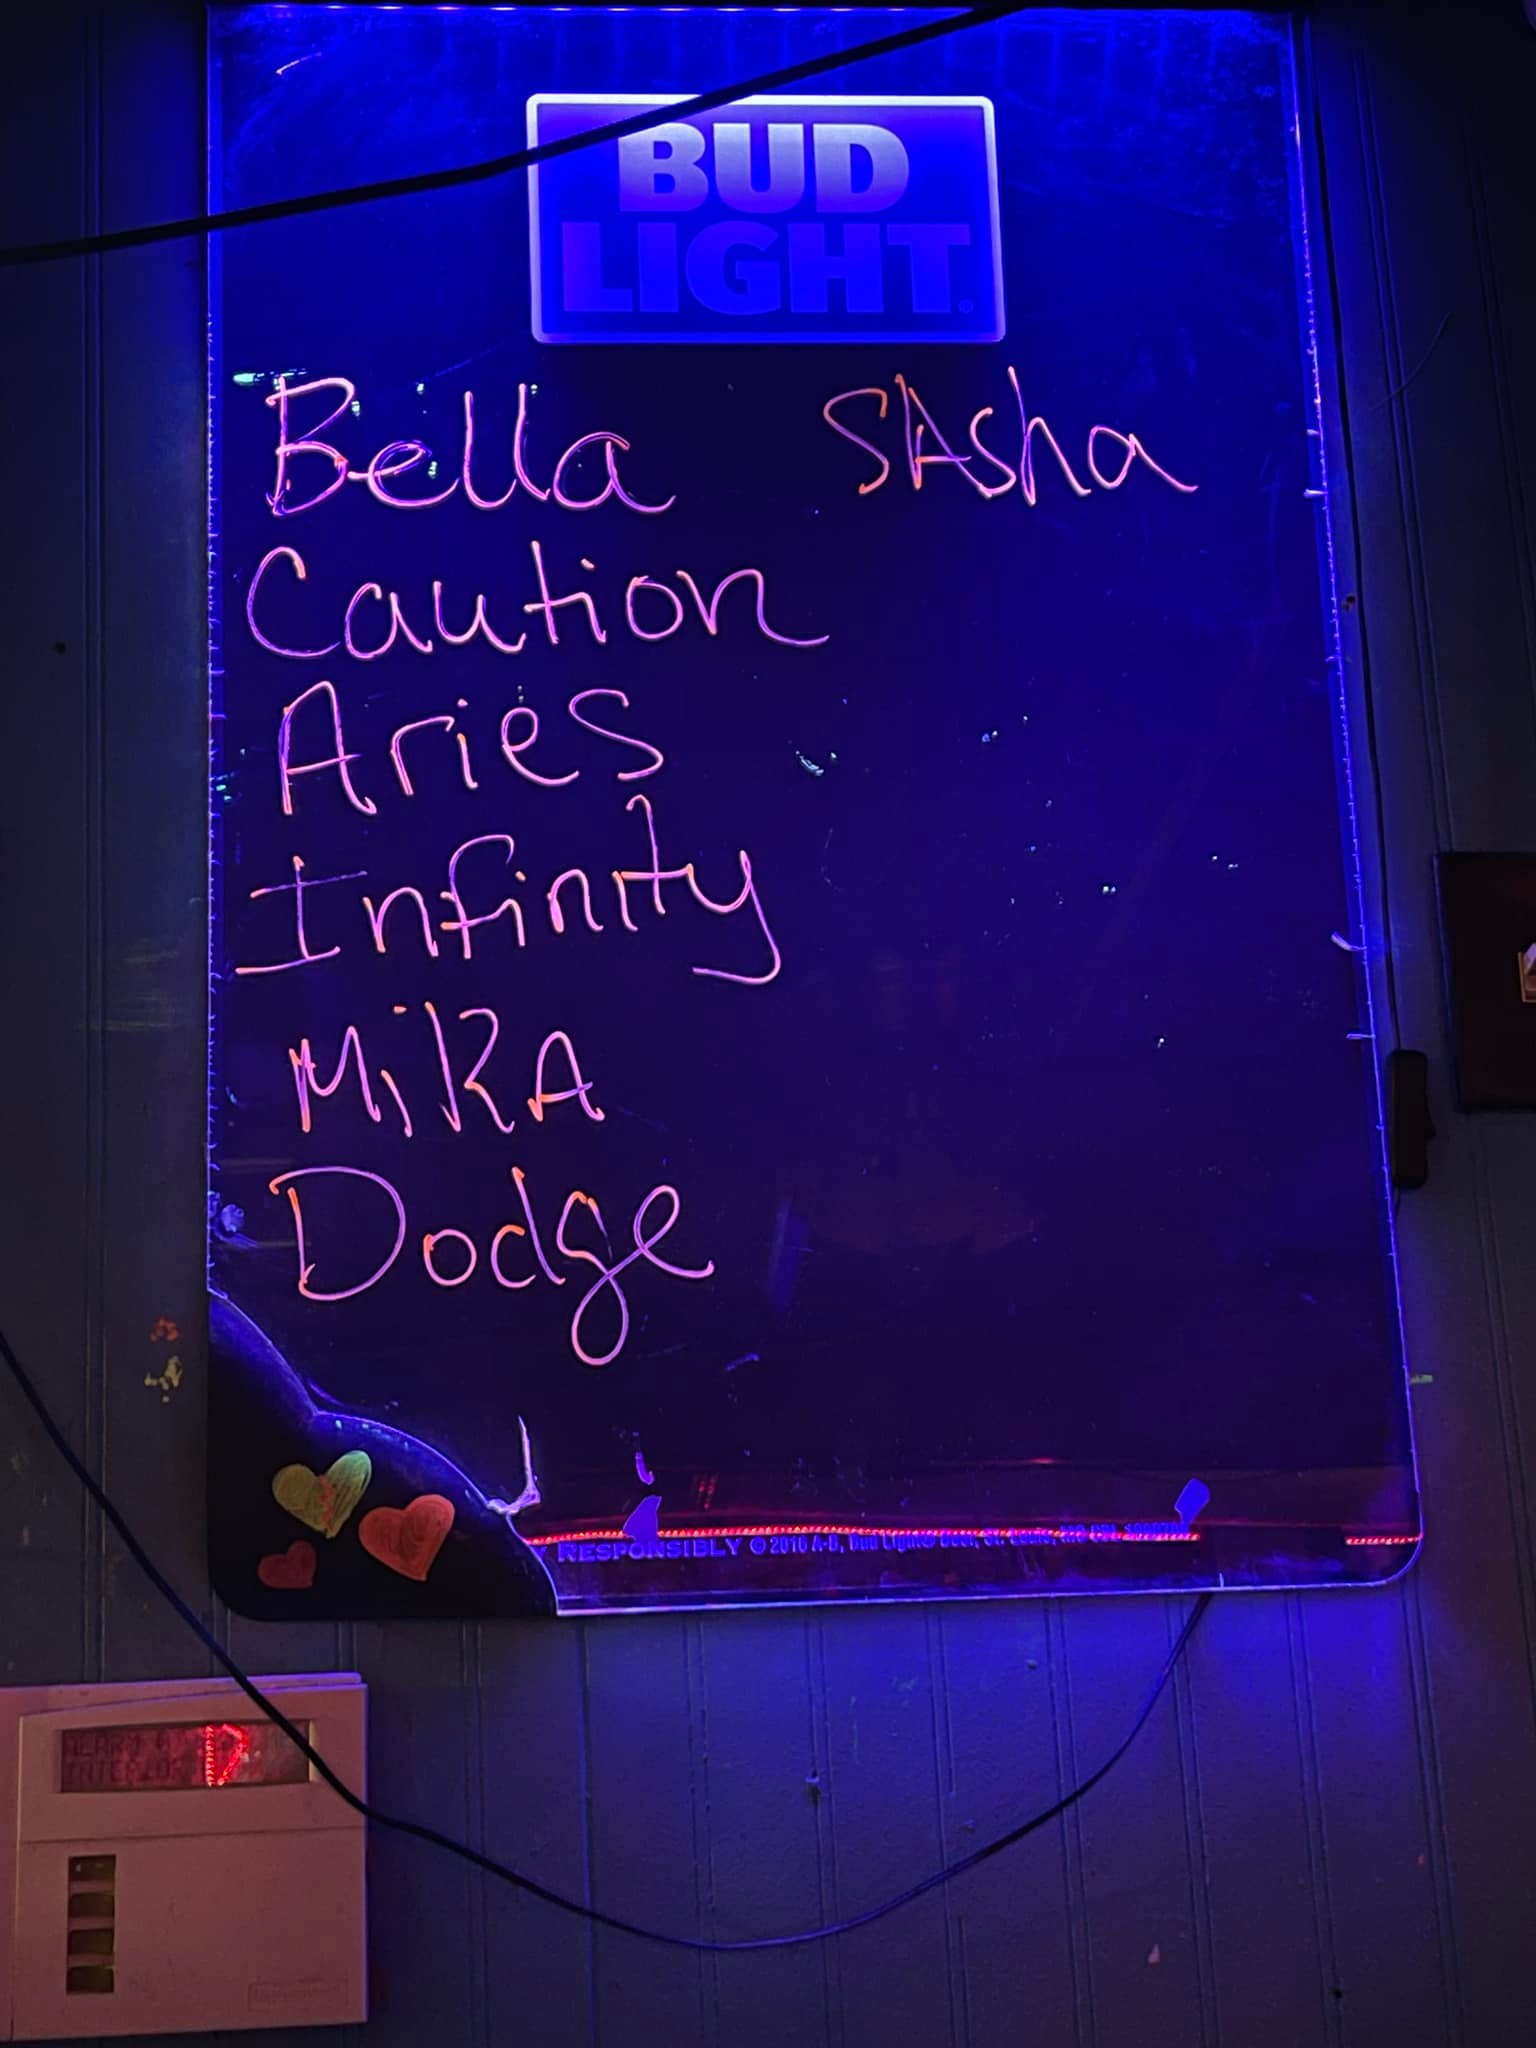 BUD
LIGHT®
Bella SAsha
Caution
Aries
Infinity
MiKA
Dodge
RESPONSIBLY © 2016 A-B, Bud Light® Beer, St. Louis, MO
ALARM
INTERIOR